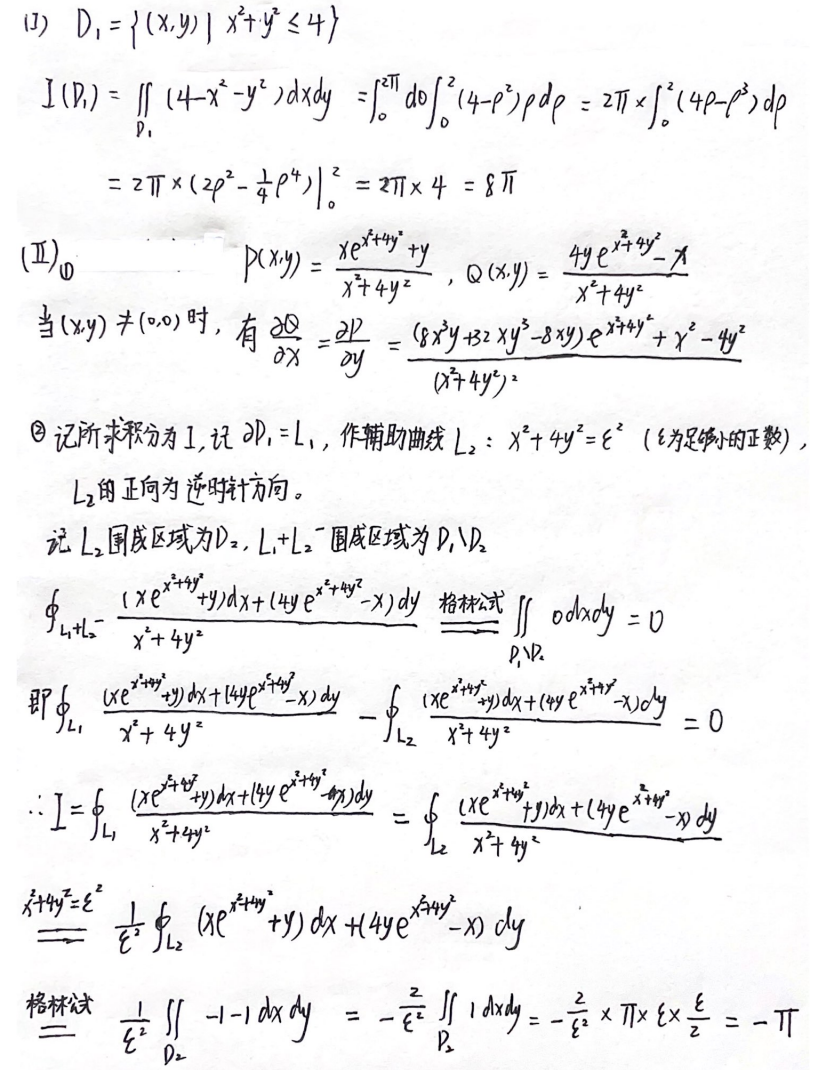 (I) D₁ = {(x,y) | x²+y² ≤ 4}
I(D₁) = ∬_{D₁} (4-x²-y²)dxdy = ∫₀^{2π} dθ ∫₀² (4-ρ²)ρdρ = 2π × ∫₀² (4ρ-ρ³)dρ
= 2π × (2ρ² - 1/4 ρ⁴)|₀² = 2π × 4 = 8π
(II)① P(x,y) = (xe^{x²+4y²}+y)/(x²+4y²), Q(x,y) = (4ye^{x²+4y²}-x)/(x²+4y²)
当(x,y) ≠ (0,0) 时, 有 ∂Q/∂x = ∂P/∂y = ((8x³y+32xy³-8xy)e^{x²+4y²}+x²-4y²)/(x²+4y²)²
② 记所求积分为I, 记 ∂D₁ = L₁, 作辅助曲线 L₂: x²+4y²=ε² (ε为足够小的正数),
L₂的正向为逆时针方向。
记 L₂围成区域为D₂, L₁+L₂⁻围成区域为 D₁\D₂
∮_{L₁+L₂⁻} ((xe^{x²+4y²}+y)dx+(4ye^{x²+4y²}-x)dy)/(x²+4y²) 格林公式 = ∬_{D₁\D₂} 0dxdy = 0
即 ∮_{L₁} ((xe^{x²+4y²}+y)dx+(4ye^{x²+4y²}-x)dy)/(x²+4y²) - ∮_{L₂} ((xe^{x²+4y²}+y)dx+(4ye^{x²+4y²}-x)dy)/(x²+4y²) = 0
∴ I = ∮_{L₁} ((xe^{x²+4y²}+y)dx+(4ye^{x²+4y²}-x)dy)/(x²+4y²) = ∮_{L₂} ((xe^{x²+4y²}+y)dx+(4ye^{x²+4y²}-x)dy)/(x²+4y²)
x²+4y²=ε² = 1/ε² ∮_{L₂} (xe^{x²+4y²}+y)dx+(4ye^{x²+4y²}-x)dy
格林公式 = 1/ε² ∬_{D₂} -1-1dxdy = -2/ε² ∬_{D₂} 1dxdy = -2/ε² × π × ε × ε/2 = -π